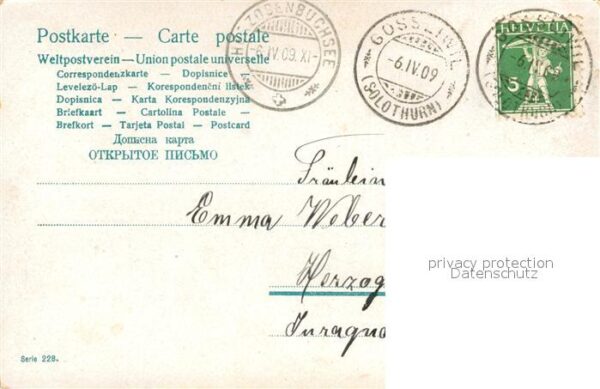 Postkarte — Carte postale
Weltpostverein — Union postale universelle
Correspondenzkarte — Dopisnice
Levelező-Lap — Korespondenční lístek
Dopisnica — Karta Korespondenzyjna
Briefkaart — Cartolina Postale —
Brefkort — Tarjeta Postal — Postcard
Дописна карта
ОТКРЫТОЕ ПИСЬМО
HERZOGENBUCHSEE
-6.IV.09.XI-
(SOLOTHURN)
-6.IV.09
HELVETIA
5
Fräulein
Emma Weber
Herzog
privacy protection
Datenschutz
Serie 228.